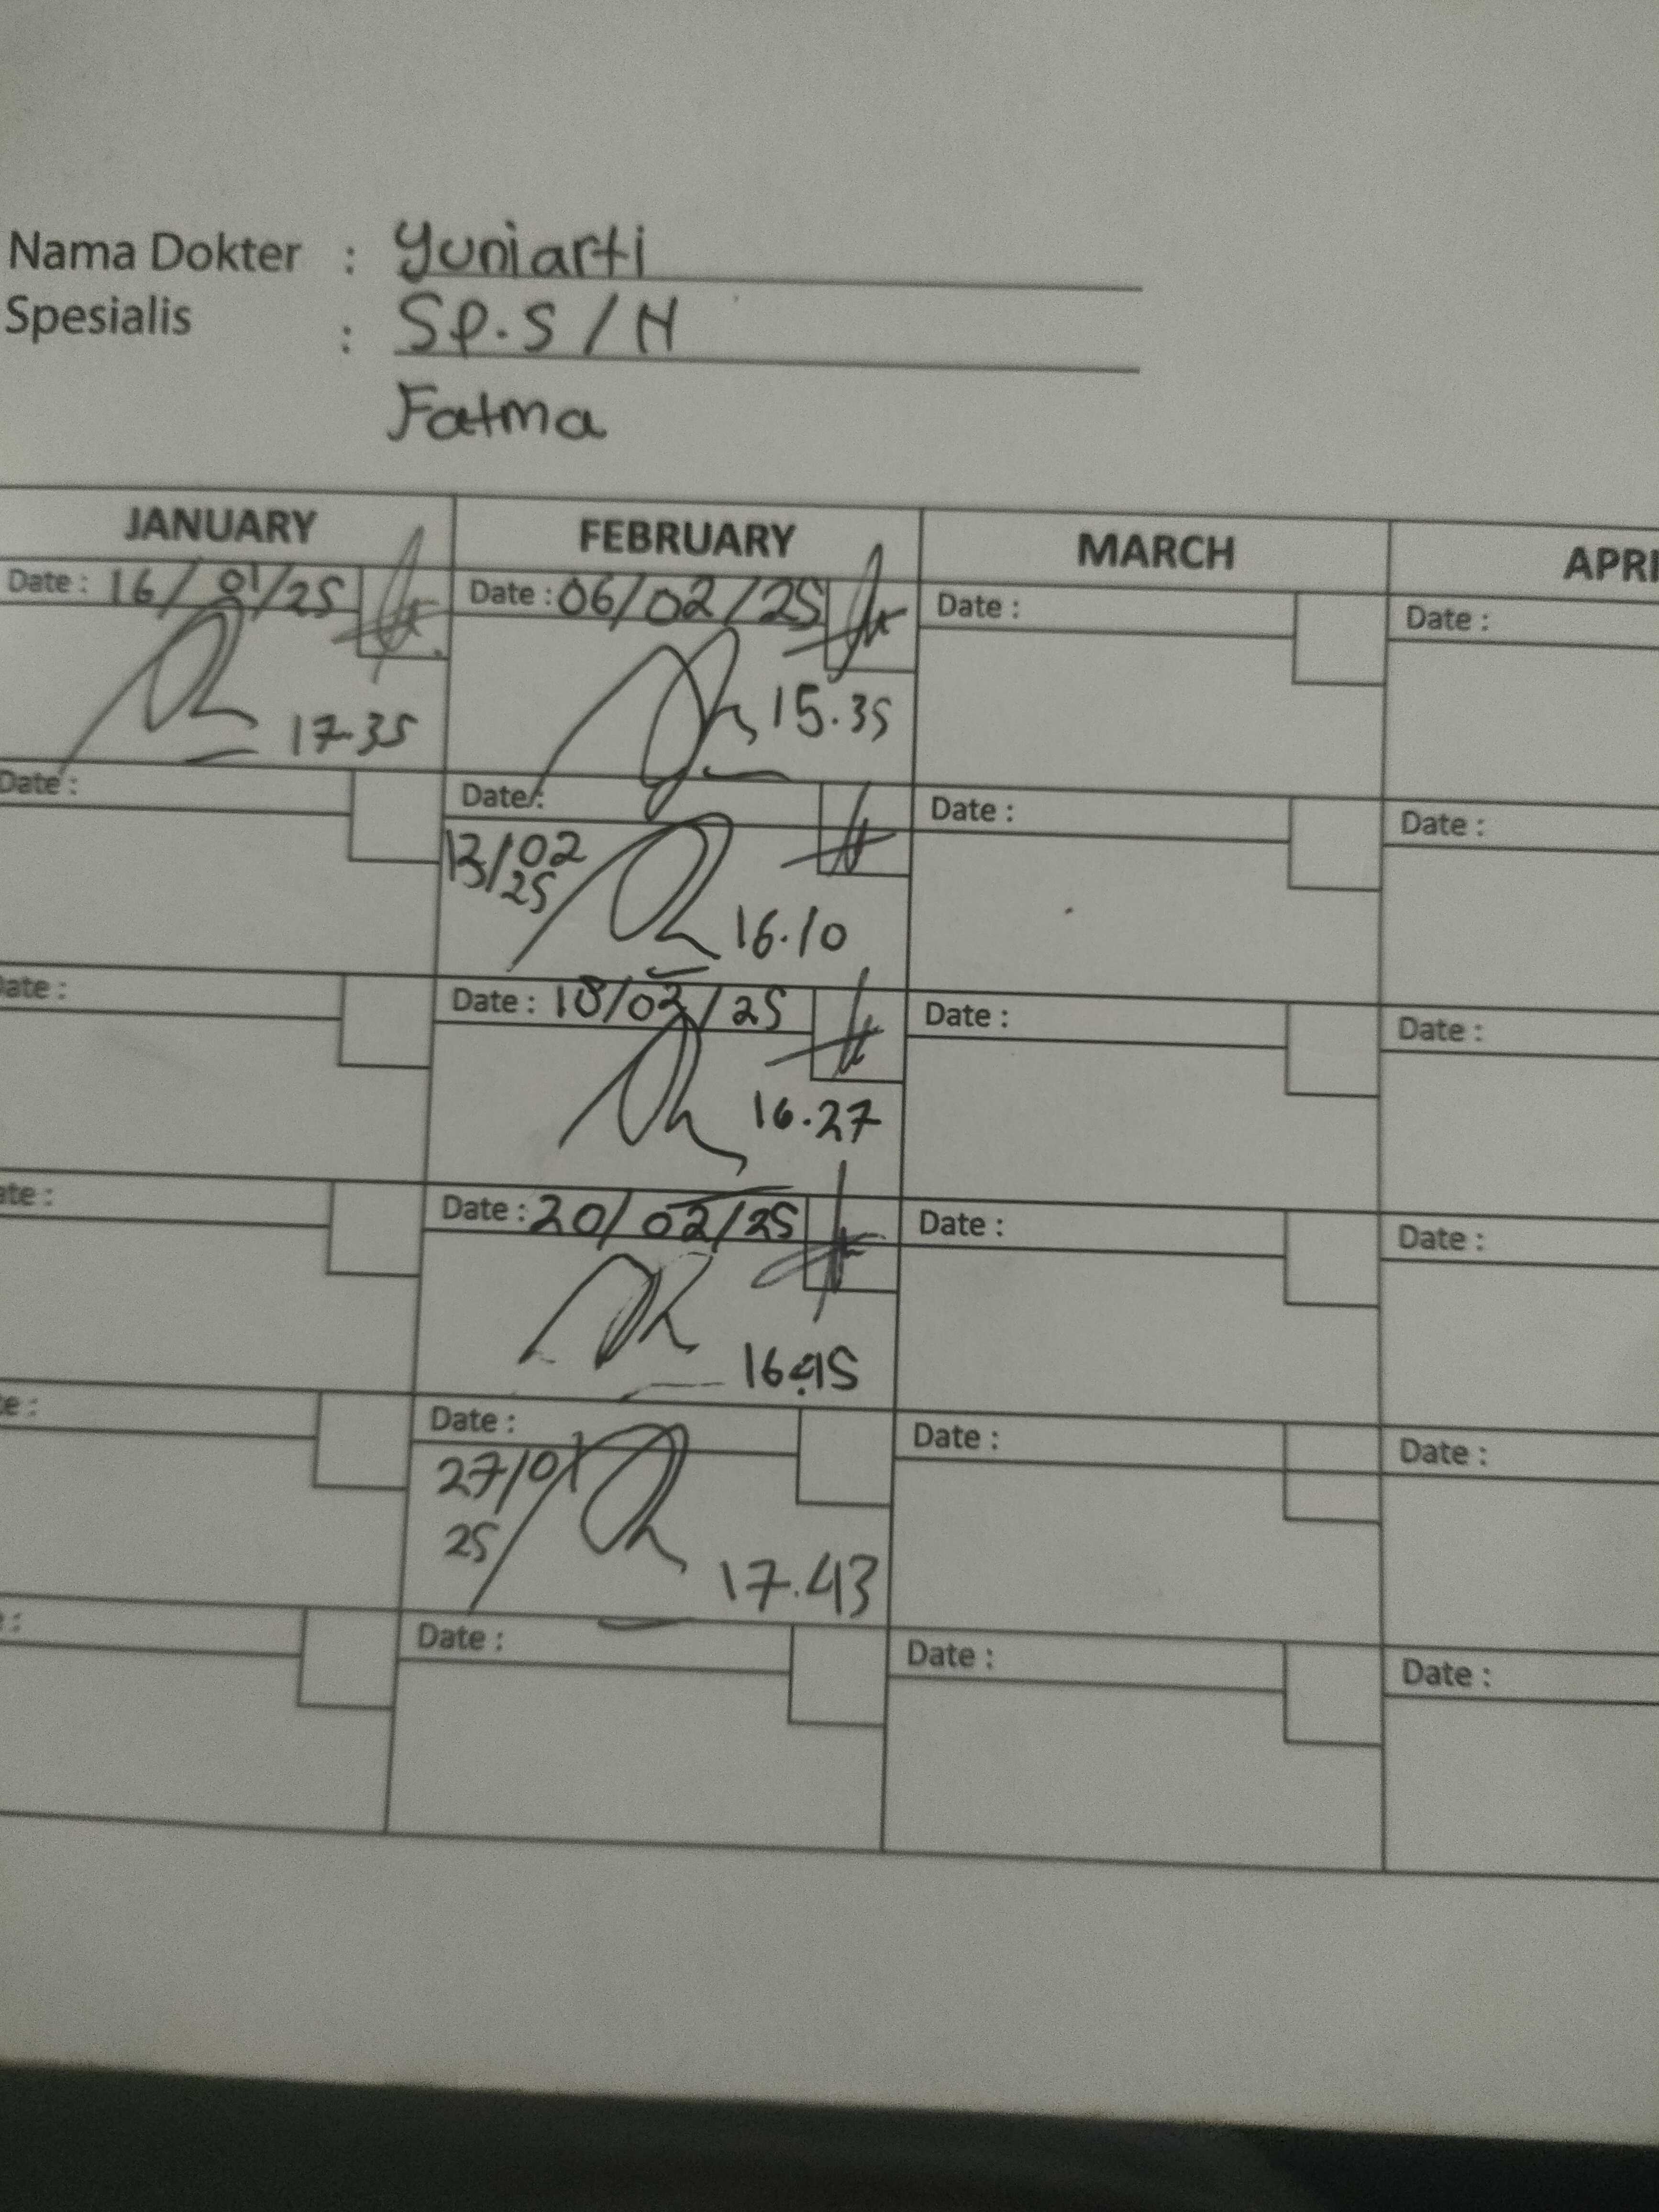 Nama Dokter : Yuniarti
Spesialis : Sp.S / N
Fatma
JANUARY FEBRUARY MARCH APRI
Date : 16/01/25 Date : 06/02/25 Date : Date :
17.35 15.35
Date : Date : Date : Date :
13/02
25
16.10
ate : Date : 18/02/25 Date : Date :
16.27
ate : Date : 20/02/25 Date : Date :
e : Date : Date : Date :
27/0
25
17.43
: Date : Date : Date :